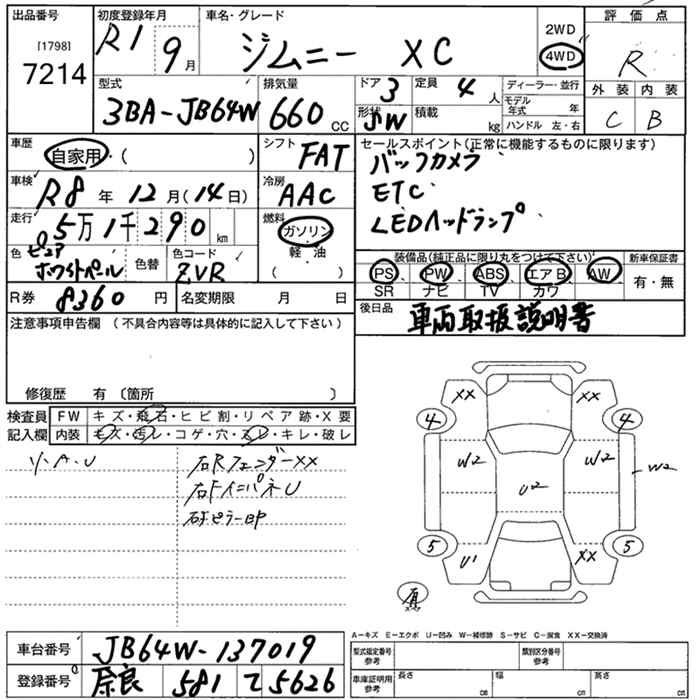 出品番号
[1798]
7214
初度登録年月
R1 9月
車名・グレード
ジムニー XC
2WD
4WD
評価点
R
外装 内装
C B
型式
3BA-JB64W
排気量
660cc
ドア 3
形状 SW
定員 4人
積載 kg
ディーラー・並行
モデル年式 年
ハンドル 左・右
車歴
自家用・( )
シフト FAT
車検
R8年 12月(14日)
冷房
AAC
走行
5万1千290km
燃料
ガソリン
軽・油
( )
色 ピュアホワイトパール
色替
色コード
ZVR
R券 8360円
名変期限 月 日
セールスポイント(正常に機能するものに限ります)
バックカメラ
ETC
LEDヘッドランプ
装備品(純正品に限り丸をつけて下さい)
PS、PW、ABS、エアB、AW
SR ナビ TV カワ
新車保証書
有・無
後日品 車両取扱説明書
注意事項申告欄(不具合内容等は具体的に記入して下さい)
修復歴 有〔箇所 〕
検査員記入欄
FW キズ・飛石・ヒビ割・リペア跡・X要
内装 キズ・汚レ・コゲ・穴・スレ・キレ・破レ
ソ・A・U
右Rフェンダー XX
右Fインパネ U
XX XX
4 4
W2 W2 W2
U2
5 5
U1 XX
A-キズ E-エクボ U-凹み W-補修跡 S-サビ C-腐食 XX-交換済
車台番号 JB64W-137019
登録番号 奈良 581 て 5626
型式指定番号 参考
類別区分番号 参考
車庫証明用 参考
長さ cm 幅 cm 高さ cm